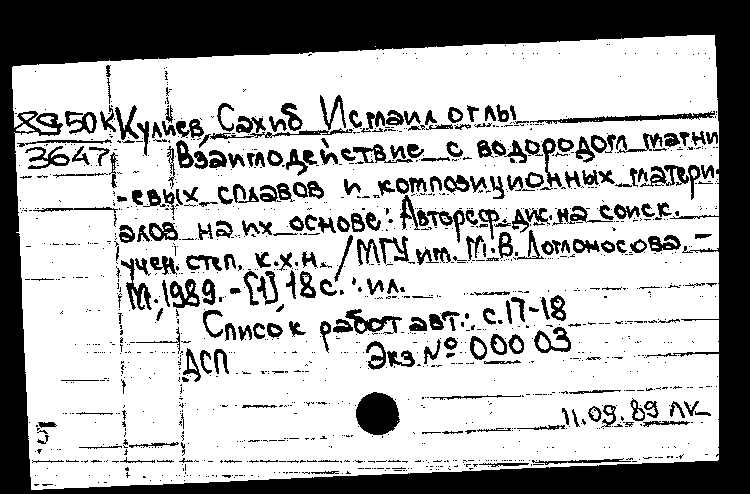 89-50К Кулиев, Сахиб Исмаил оглы
3647 Взаимодействие с водородом магни
-евых сплавов и композиционных матери-
алов на их основе: Автореф. дис. на соиск.
учен. степ. к.х.н. / МГУ им. М.В. Ломоносова. –
М., 1989. - [1], 18 с. : ил.
Список работ авт.: с. 17-18
ДСП Экз. № 000 03
11.09.89 ЛК
5